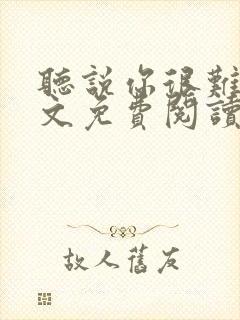 聽說你很難
文免費閱讀
故人舊友